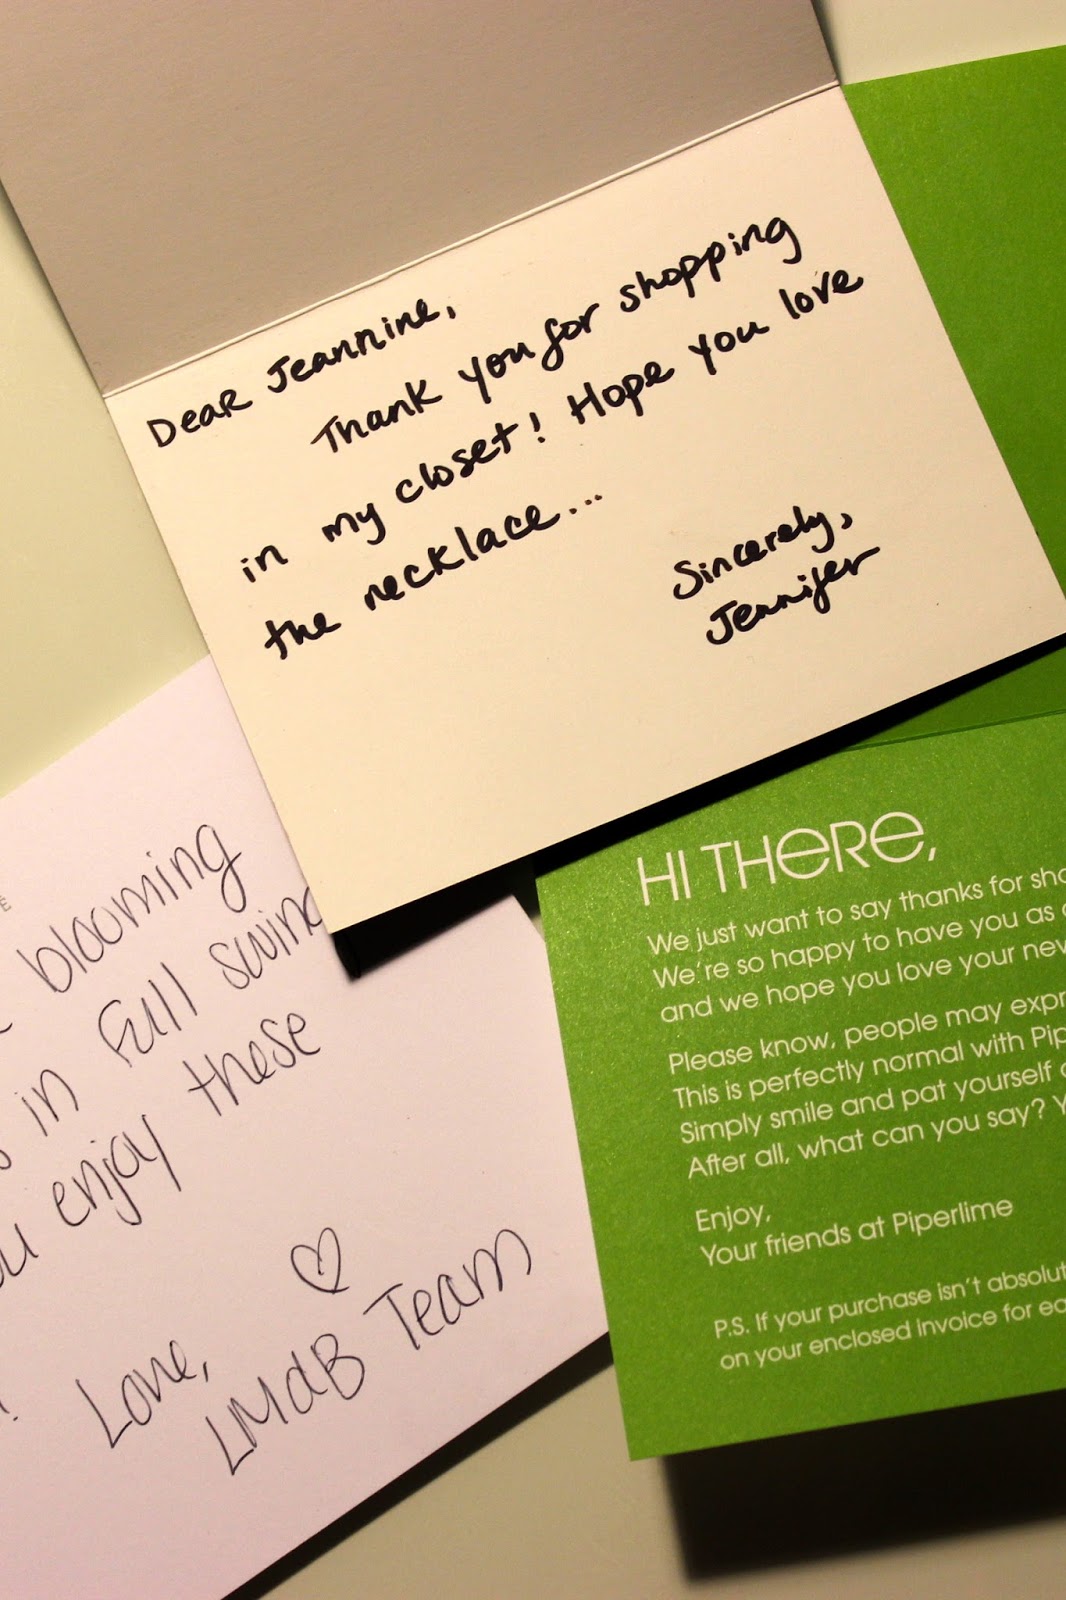 Dear Jeannine,
Thank you for shopping
in my closet! Hope you love
the necklace...
Sincerely,
Jennifer
blooming
in full swing
enjoy these
Love,
LMdB Team
HI THERE,
We just want to say thanks for
We're so happy to have you as
and we hope you love your new
Please know, people may
This is perfectly normal with
Simply smile and pat yourself
After all, what can you say?
Enjoy,
Your friends at Piperlime
P.S. If your purchase isn't
on your enclosed invoice for